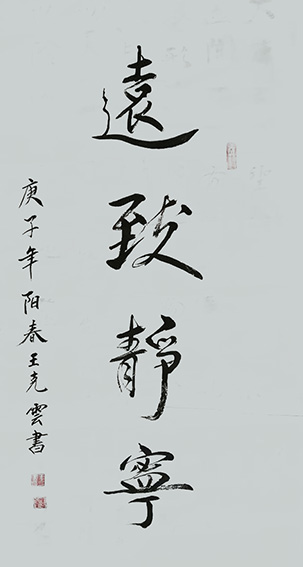 遠致靜寧
庚子年阳春王克雲書